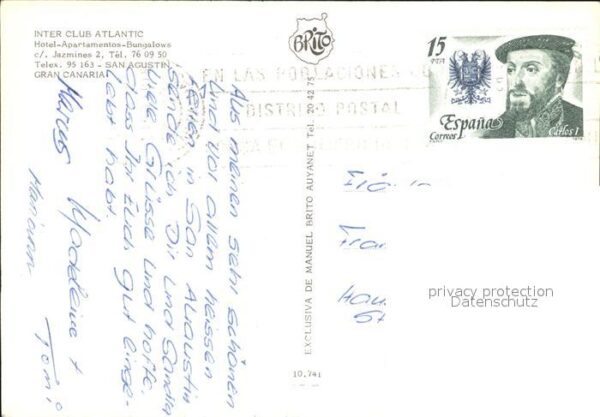 INTER CLUB ATLANTIC
Hotel-Apartamentos-Bungalows
c/. Jazmines 2, Tél. 76 09 50
Telex. 95 163 - SAN AGUSTIN
GRAN CANARIA
BRITO
15
PTA
España
Correos
Carlos I
EN LAS POBLACIONES CO
DISTRITO POSTAL
Aus meinen sehr schönen
und vor allem heissen
Ferien in San Augustin
sende ich Dir und Sandra
viele Grüsse und hoffe,
dass Ihr Euch gut einge-
lebt habt.
Marcus Madeleine +
Toni
EXCLUSIVA DE MANUEL BRITO AUYANET Tel. 20 42 75
10.741
privacy protection
Datenschutz